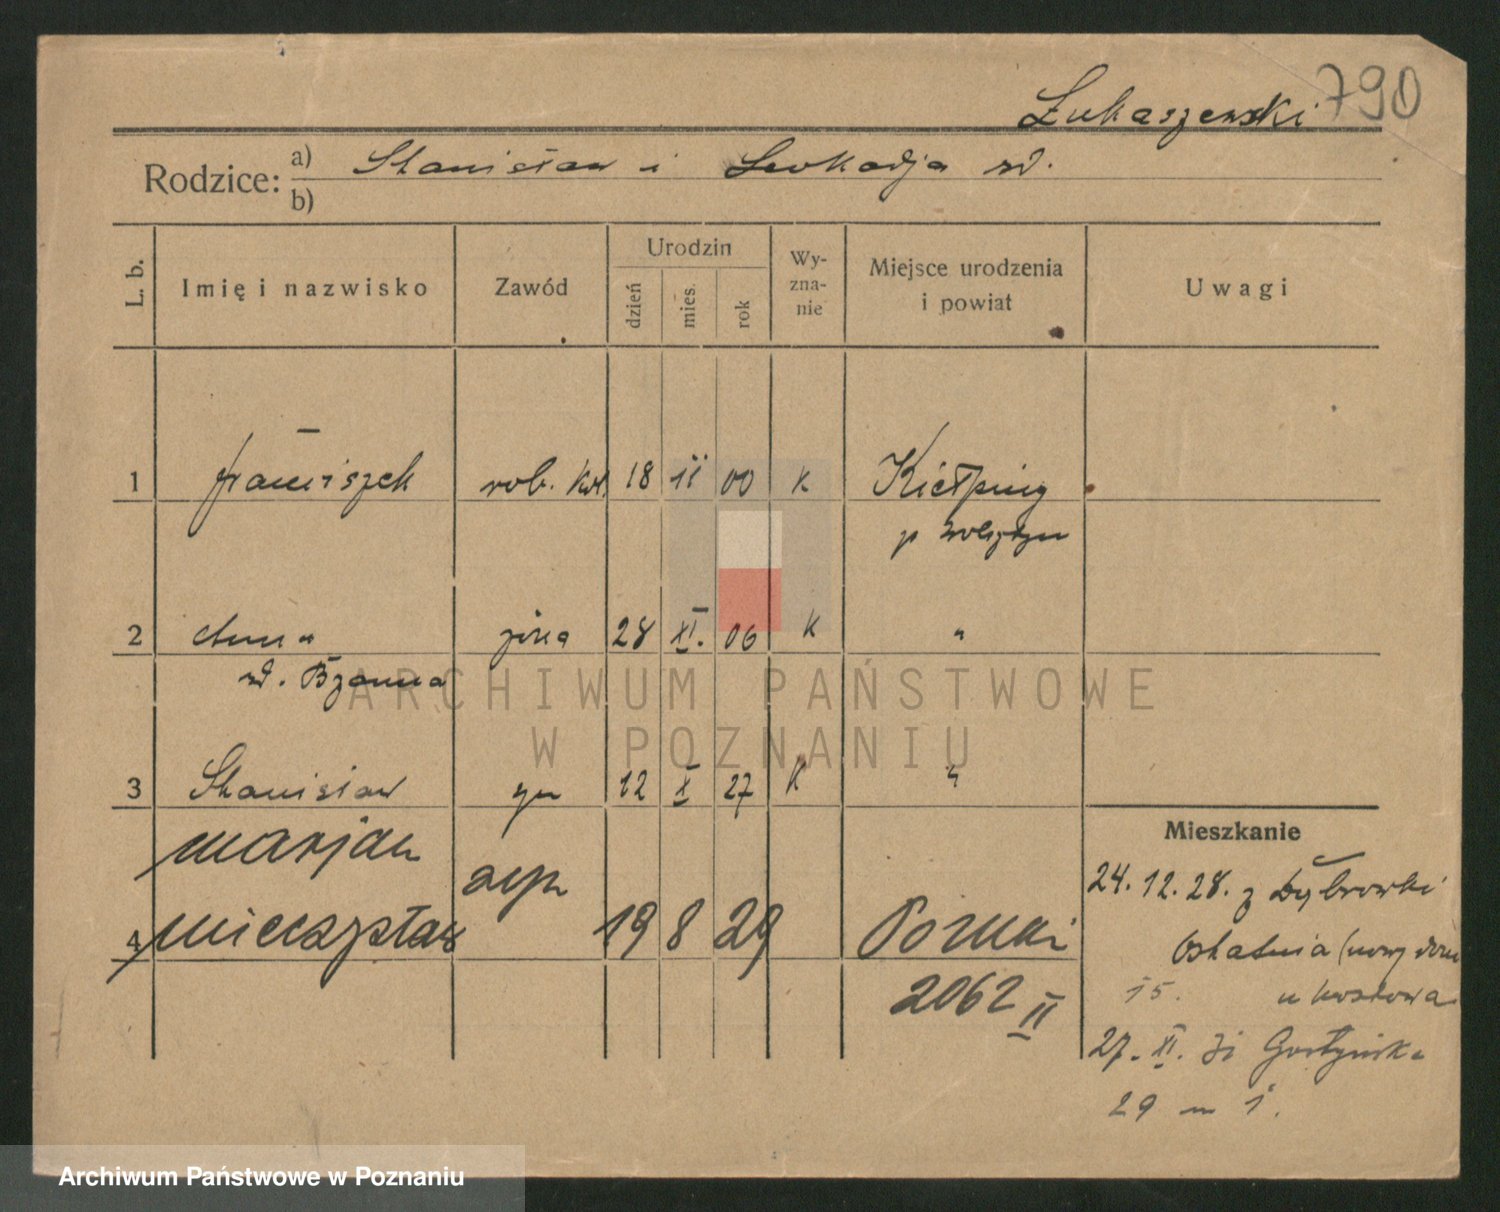 790
Łukaszewski
Rodzice: a) Stanisław i Leokadja
b)
L. b. Imię i nazwisko Zawód Urodzin dzień mies. rok Wyznanie Miejsce urodzenia i powiat Uwagi
1 Franciszek rob. kol. 18 II 00 K Kiełpiny
p Wolsztyn
2 Anna żona 28 XI. 06 K "
Bzanna
3 Stanisław syn 12 X 27 K "
Marjan
syn
4 Mieczysław 19 8 29 Poznań
2062 II
Mieszkanie
24. 12. 28. z Dąbrowki
Ostatnia (nowy dom
15.
27. XI. 31 Gostyńska
29 m 1.
ARCHIWUM PAŃSTWOWE
W POZNANIU
Archiwum Państwowe w Poznaniu